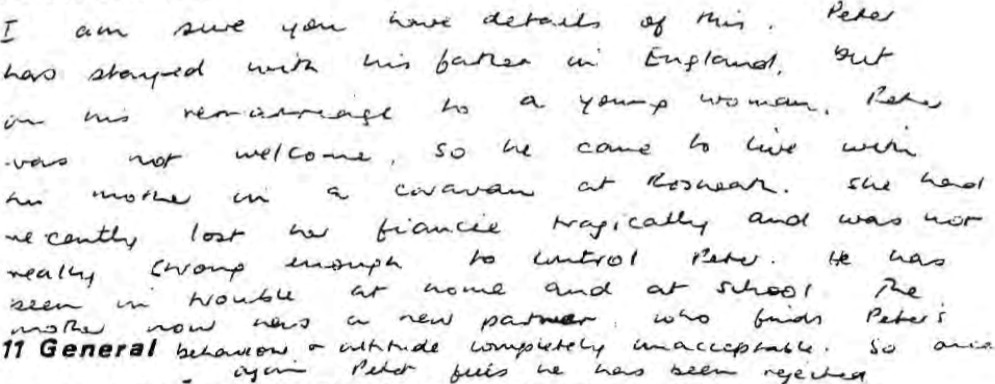 I am sure you have details of this. Peter
has stayed with his father in England, but
on his remarriage to a young woman, Peter
was not welcome, so he came to live with
his mother in a caravan at Rosneath. She had
recently lost her fiancée tragically and was not
really strong enough to control Peter. He has
been in trouble at home and at school. The
mother now has a new partner, who finds Peter's
11 General behaviour & attitude completely unacceptable. So once
again Peter feels he has been rejected